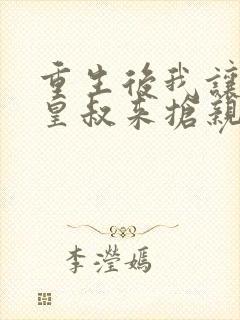 重生後我讓
皇叔來搶親
李瀅嫣